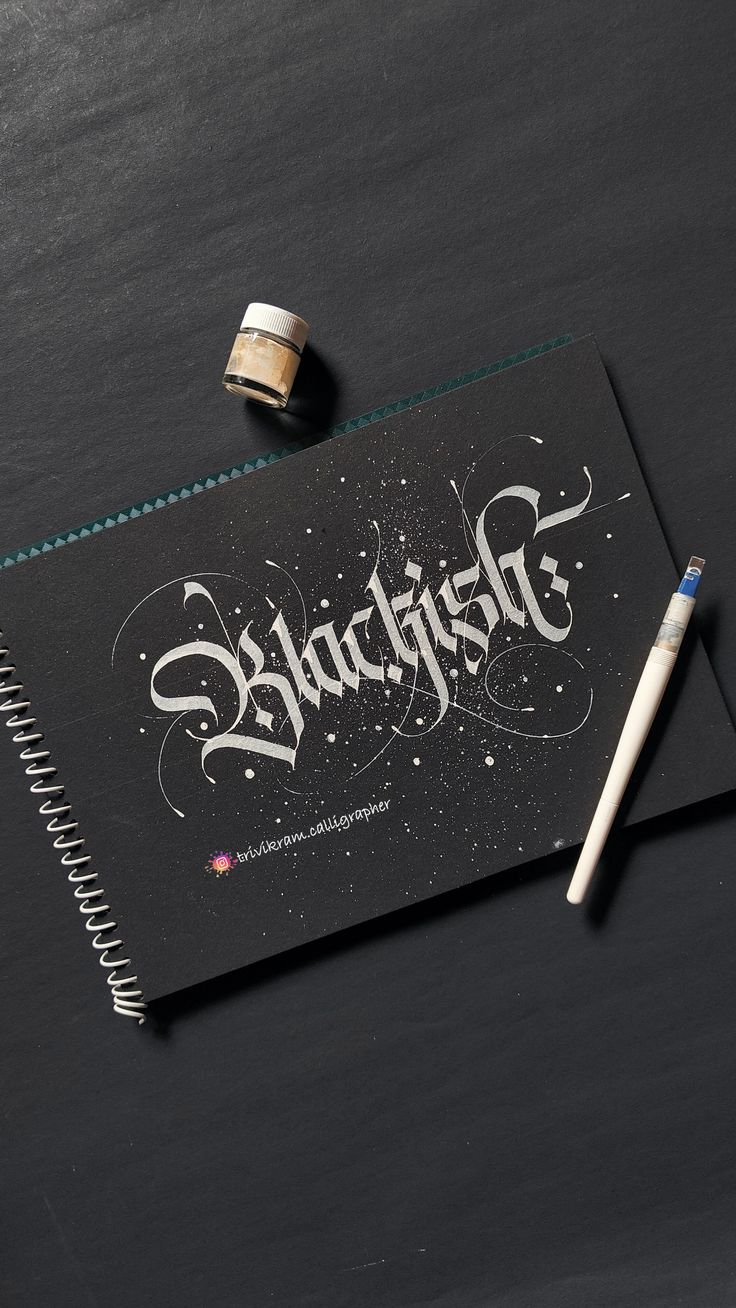 Blackish
trivikram.calligrapher